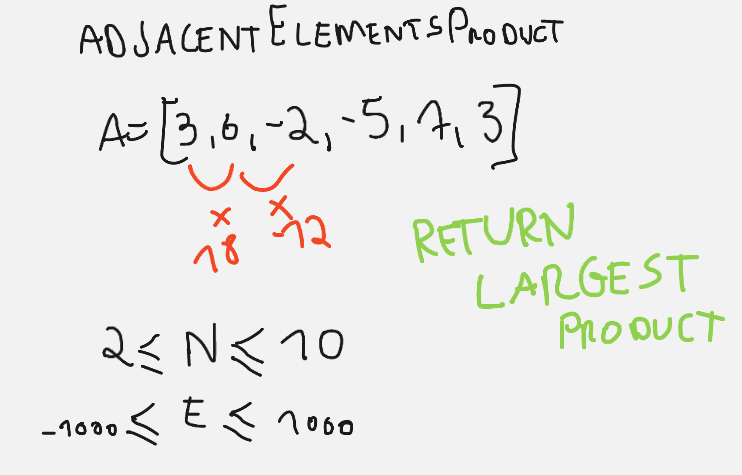 ADJACENTELEMENTSPRODUCT
A=[3,6,-2,-5,7,3]
x x
18 -12
RETURN
LARGEST
PRODUCT
2 ≤ N ≤ 10
-1000 ≤ E ≤ 1000